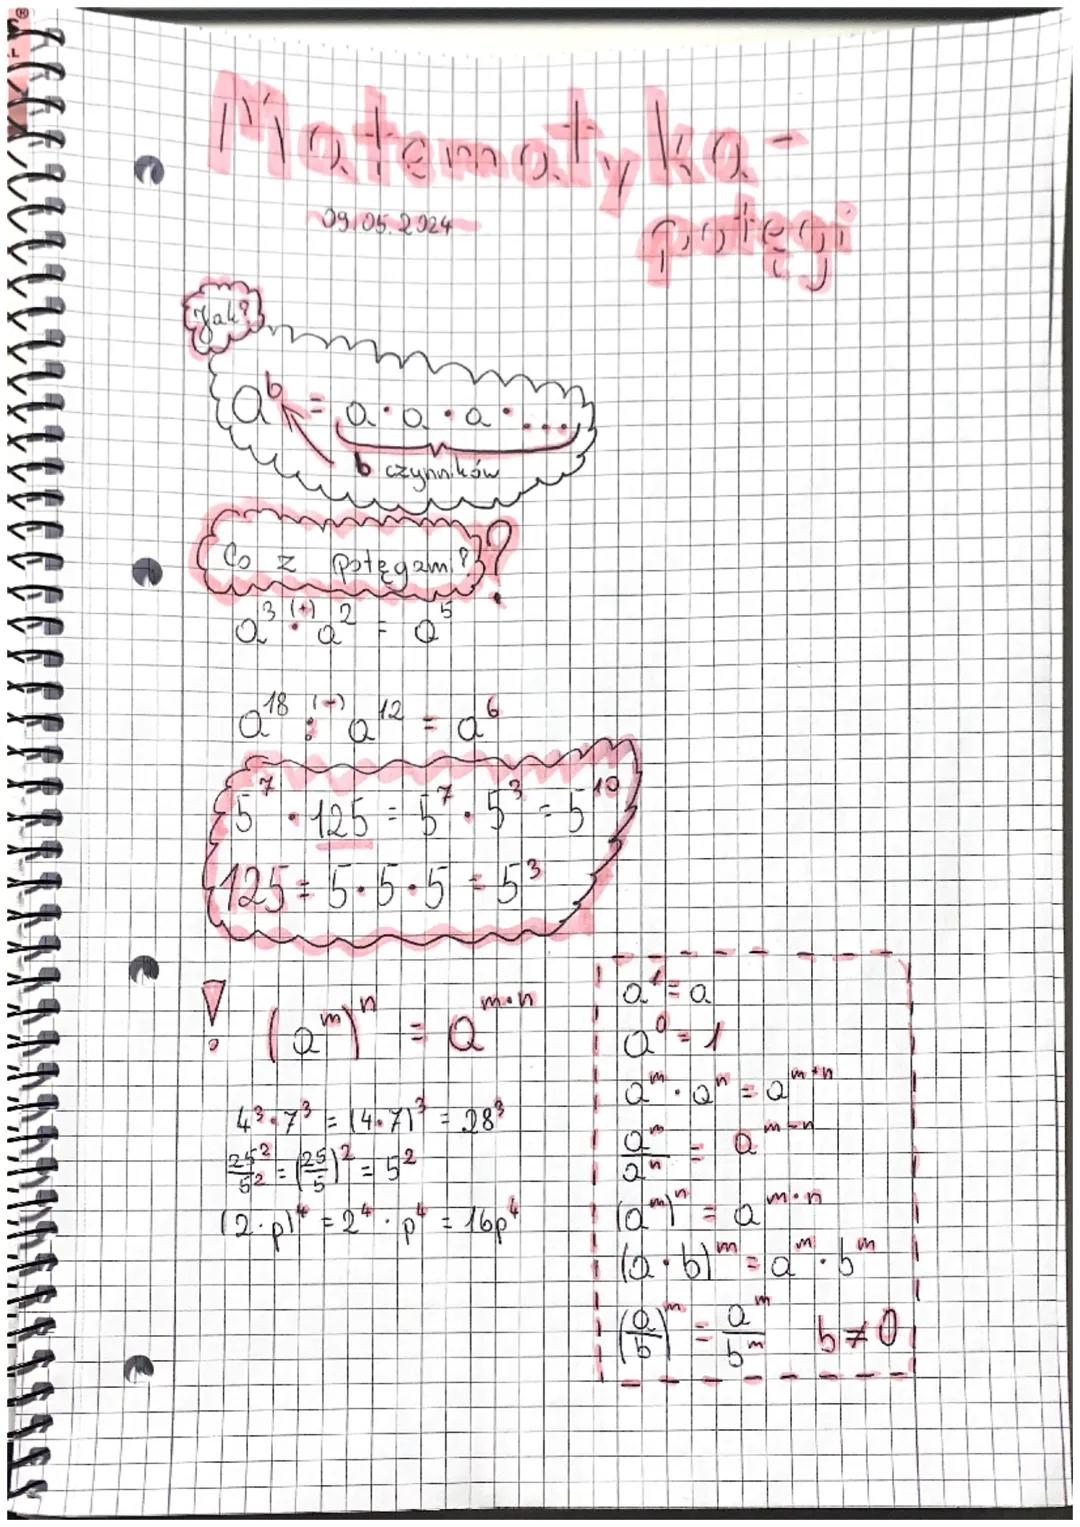 Matematyka-
potęgi
09.05.2024
Jak?
a^b = a · a · a · ...
b czynników
Co z potęgami?
?
a^3 (+) · a^2 = a^5
a^18 (-) : a^12 = a^6
5^7 · 125 = 5^7 · 5^3 = 5^10
125 = 5 · 5 · 5 = 5^3
! (a^m)^n = a^(m·n)
4^3 · 7^3 = (4·7)^3 = 28^3
25^2/5^2 = (25/5)^2 = 5^2
(2·p)^4 = 2^4 · p^4 = 16p^4
a^1 = a
a^0 = 1
a^m · a^n = a^(m+n)
a^m/a^n = a^(m-n)
(a^m)^n = a^(m·n)
(a·b)^m = a^m · b^m
(a/b)^m = a^m/b^m b ≠ 0